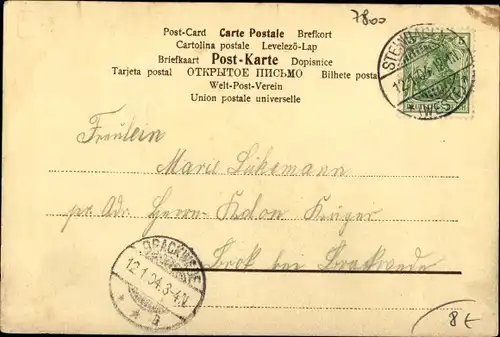 7800
Post-Card Carte Postale Brefkort
Cartolina postale Levelező-Lap
Briefkaart Post-Karte Dopisnice
Tarjeta postal ОТКРЫТОЕ ПИСЬМО Bilhete postal
Welt-Post-Verein
Union postale universelle
Fräulein
Marie Lükemann
pr. Adr. Herrn Kolon Krüger
Brock bei Brackwede
BRACKWEDE
12.1.04.3-4.N
* * a
8€